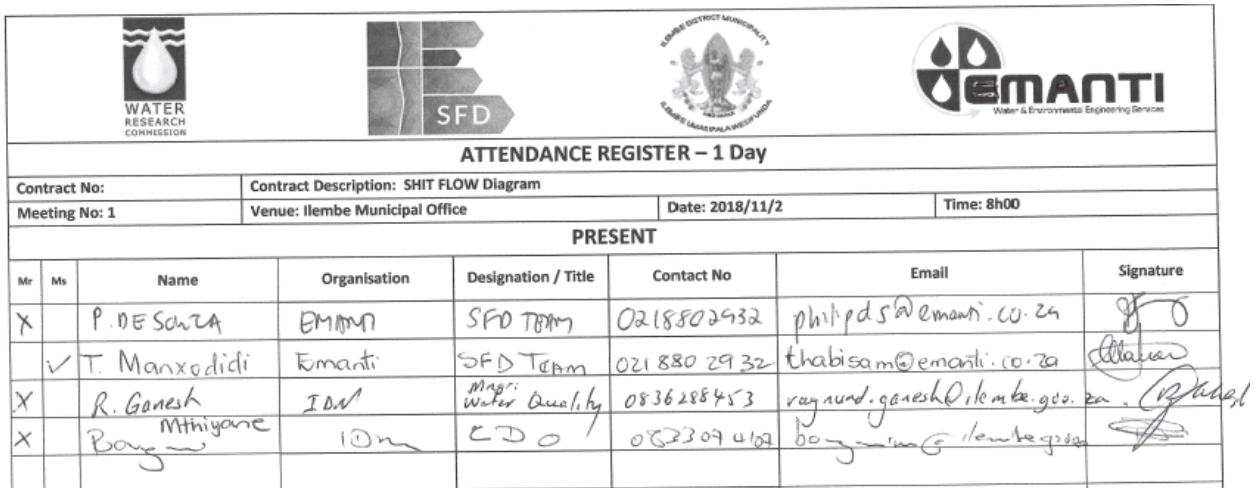 WATER
RESEARCH
COMMISSION
SFD
ILEMBE DISTRICT MUNICIPALITY
ILEMBE UMASIPALA WESIFUNDA
EMANTI
Water & Environmental Engineering Services
ATTENDANCE REGISTER – 1 Day
Contract No: Contract Description: SHIT FLOW Diagram
Meeting No: 1 Venue: Ilembe Municipal Office Date: 2018/11/2 Time: 8h00
PRESENT
Mr Ms Name Organisation Designation / Title Contact No Email Signature
X P. DE SOUZA EMANTI SFD TEAM 0218802932 philipds@emanti.co.za
✓ T. Manxodidi Emanti SFD TEAM 021 880 2932 thabisam@emanti.co.za
X R. Ganesh IDM Water Quality 0836288453 raymund.ganesh@ilembe.gov.za
X Mthiyane IDM